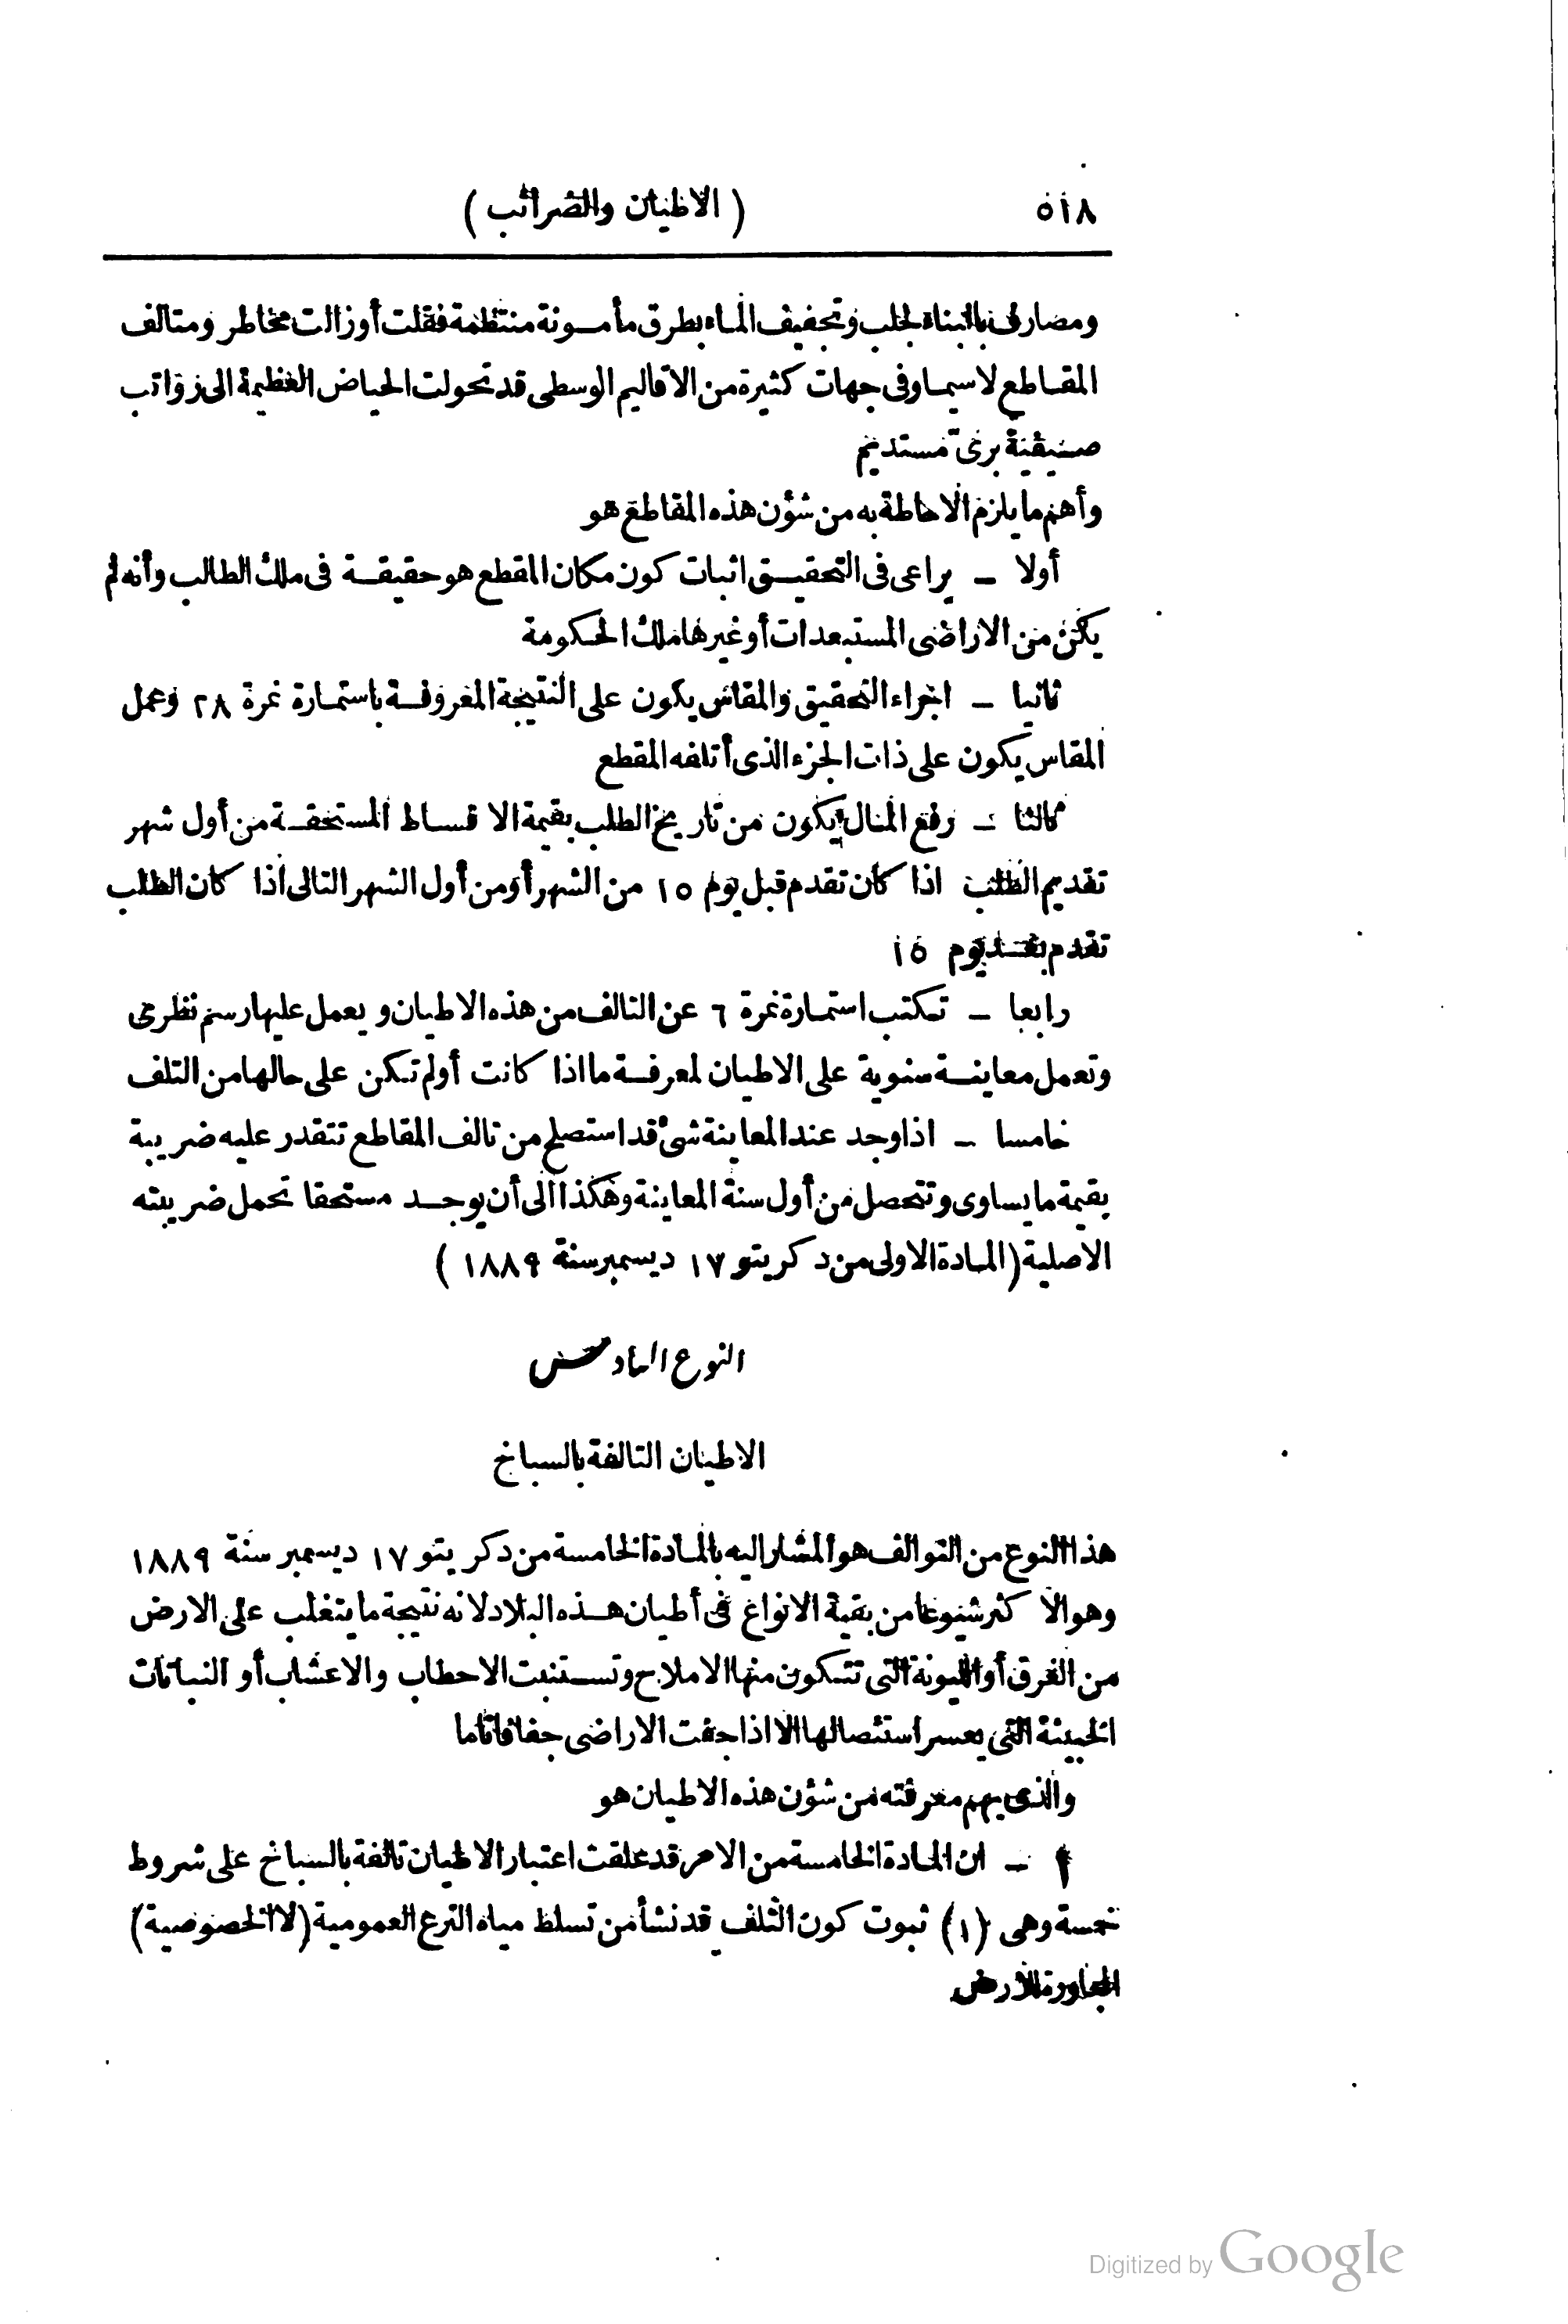 ٥١٨ ( الاطيان والضرائب )
ومصارف بالبناء لجلب وتجفيف الماء بطرق مأمونة منتظمة فقلت أو زالت مخاطر ومتالف
المقاطع لاسيما وفى جهات كثيرة من الاقاليم الوسطى قد تحولت الحياض العظيمة الى زواتب
صيفية برى مستديم
وأهم ما يلزم الاحاطة به من شؤن هذه المقاطع هو
أولا – يراعى فى التحقيق اثبات كون مكان المقطع هو حقيقة فى ملك الطالب وأنه لم
يكن من الاراضى المستبعدات أو غيرها ملك الحكومة
ثانيا – اجراء التحقيق والمقاس يكون على النتيجة المعروفة باستمارة نمرة ٢٨ وعمل
المقاس يكون على ذات الجزء الذى أتلفه المقطع
ثالثا – رفع المال يكون من تاريخ الطلب بقيمة الاقساط المستحقة من أول شهر
تقديم الطلب اذا كان تقدم قبل يوم ١٥ من الشهر أو من أول الشهر التالى اذا كان الطلب
تقدم بعد يوم ١٥
رابعا – تكتب استمارة نمرة ٦ عن التالف من هذه الاطيان ويعمل عليها رسم نظرى
وتعمل معاينة سنوية على الاطيان لمعرفة ما اذا كانت أو لم تكن على حالها من التلف
خامسا – اذا وجد عند المعاينة شئ قد استصلح من تالف المقاطع تتقدر عليه ضريبة
بقيمة ما يساوى وتتحصل من أول سنة المعاينة وهكذا الى أن يوجد مستحقا تحمل ضريبته
الاصلية (المادة الاولى من دكريتو ١٧ ديسمبر سنة ١٨٨٩ )
النوع السادس
الاطيان التالفة بالسباخ
هذا النوع من التوالف هو المشار اليه بالمادة الخامسة من دكريتو ١٧ ديسمبر سنة ١٨٨٩
وهو الاكثر شيوعا من بقية الانواع فى أطيان هذه البلاد لانه نتيجة ما يتغلب على الارض
من الغرق أو الليونة التى تتكون منها الاملاح وتستنبت الاحطاب والاعشاب أو النباتات
الخبيثة التى يعسر استئصالها الا اذا جفت الاراضى جفافا تاما
والذى يهم معرفته من شؤن هذه الاطيان هو
أ – ان المادة الخامسة من الامر قد علقت اعتبار الاطيان تالفة بالسباخ على شروط
خمسة وهى (١) ثبوت كون التلف قد نشأ من تسلط مياه الترع العمومية (لا الخصوصية)
المجاورة للارض
Digitized by Google